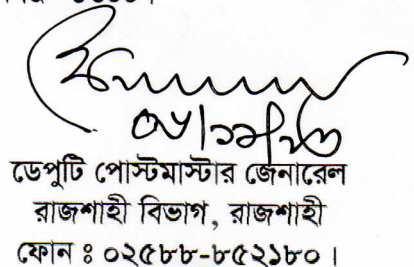 ডেপুটি পোস্টমাস্টার জেনারেল
রাজশাহী বিভাগ, রাজশাহী
ফোন ঃ ০২৫৮৮-৮৫২১৮০ ।